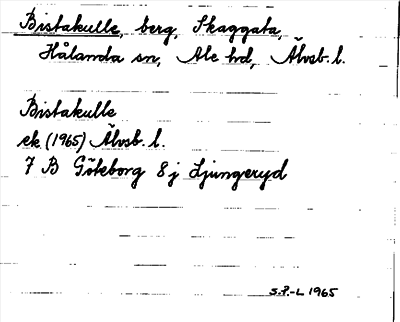 Bistakulle, berg, Skaggata,
Hålanda sn, Ale hd, Älvsb. l.
Bistakulle
ek (1965) Älvsb. l.
7 B Göteborg 8 j Ljungeryd
S.P.-L 1965